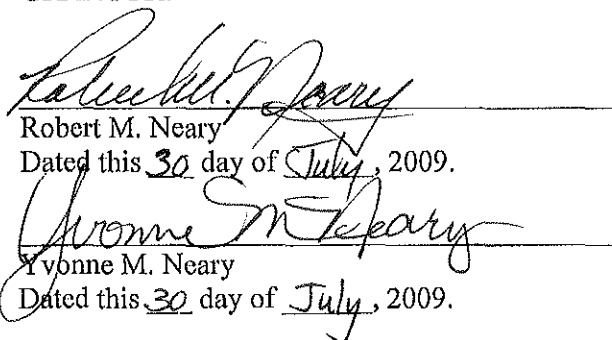 Robert M. Neary
Robert M. Neary
Dated this 30 day of July, 2009.
Yvonne M Neary
Yvonne M. Neary
Dated this 30 day of July, 2009.